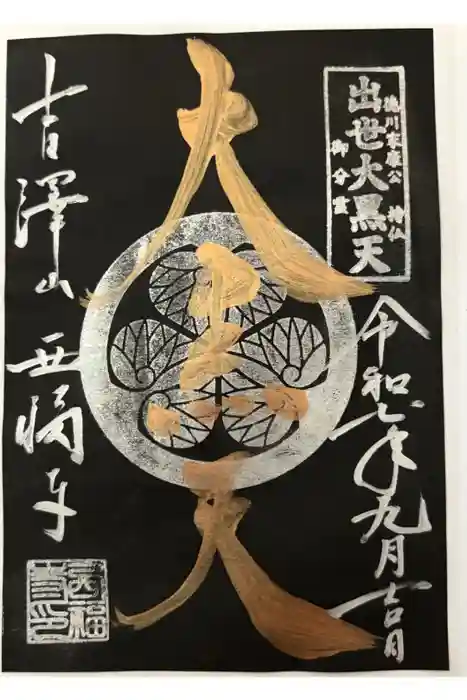 徳川家康公 持仏
出世大黒天
御分霊
令和七年九月吉日
大黒天
吉澤山 西福寺